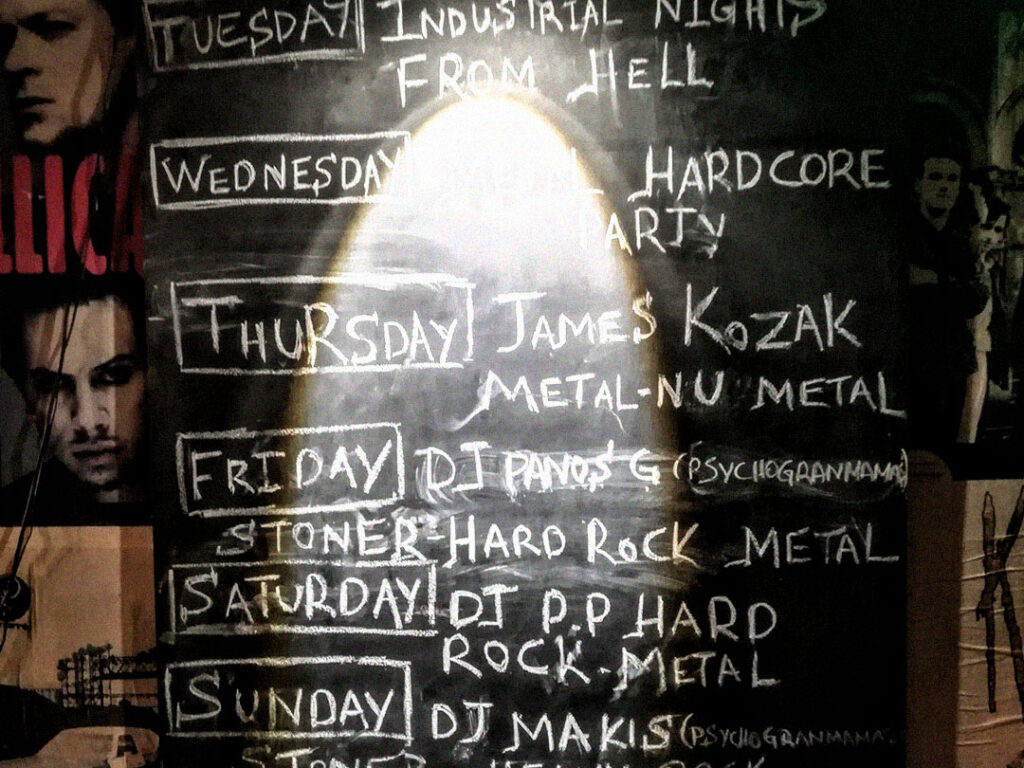 TUESDAY INDUSTRIAL NIGHTS
FROM HELL
WEDNESDAY HARDCORE
PARTY
THURSDAY JAMES KOZAK
METAL-NU METAL
FRIDAY DJ PANOS G (PSYCHOGRANMAMAS)
STONER-HARD ROCK METAL
SATURDAY DJ P.P HARD
ROCK-METAL
SUNDAY DJ MAKIS (PSYCHOGRANMAMAS
STONER HEAVY ROCK
LLICA